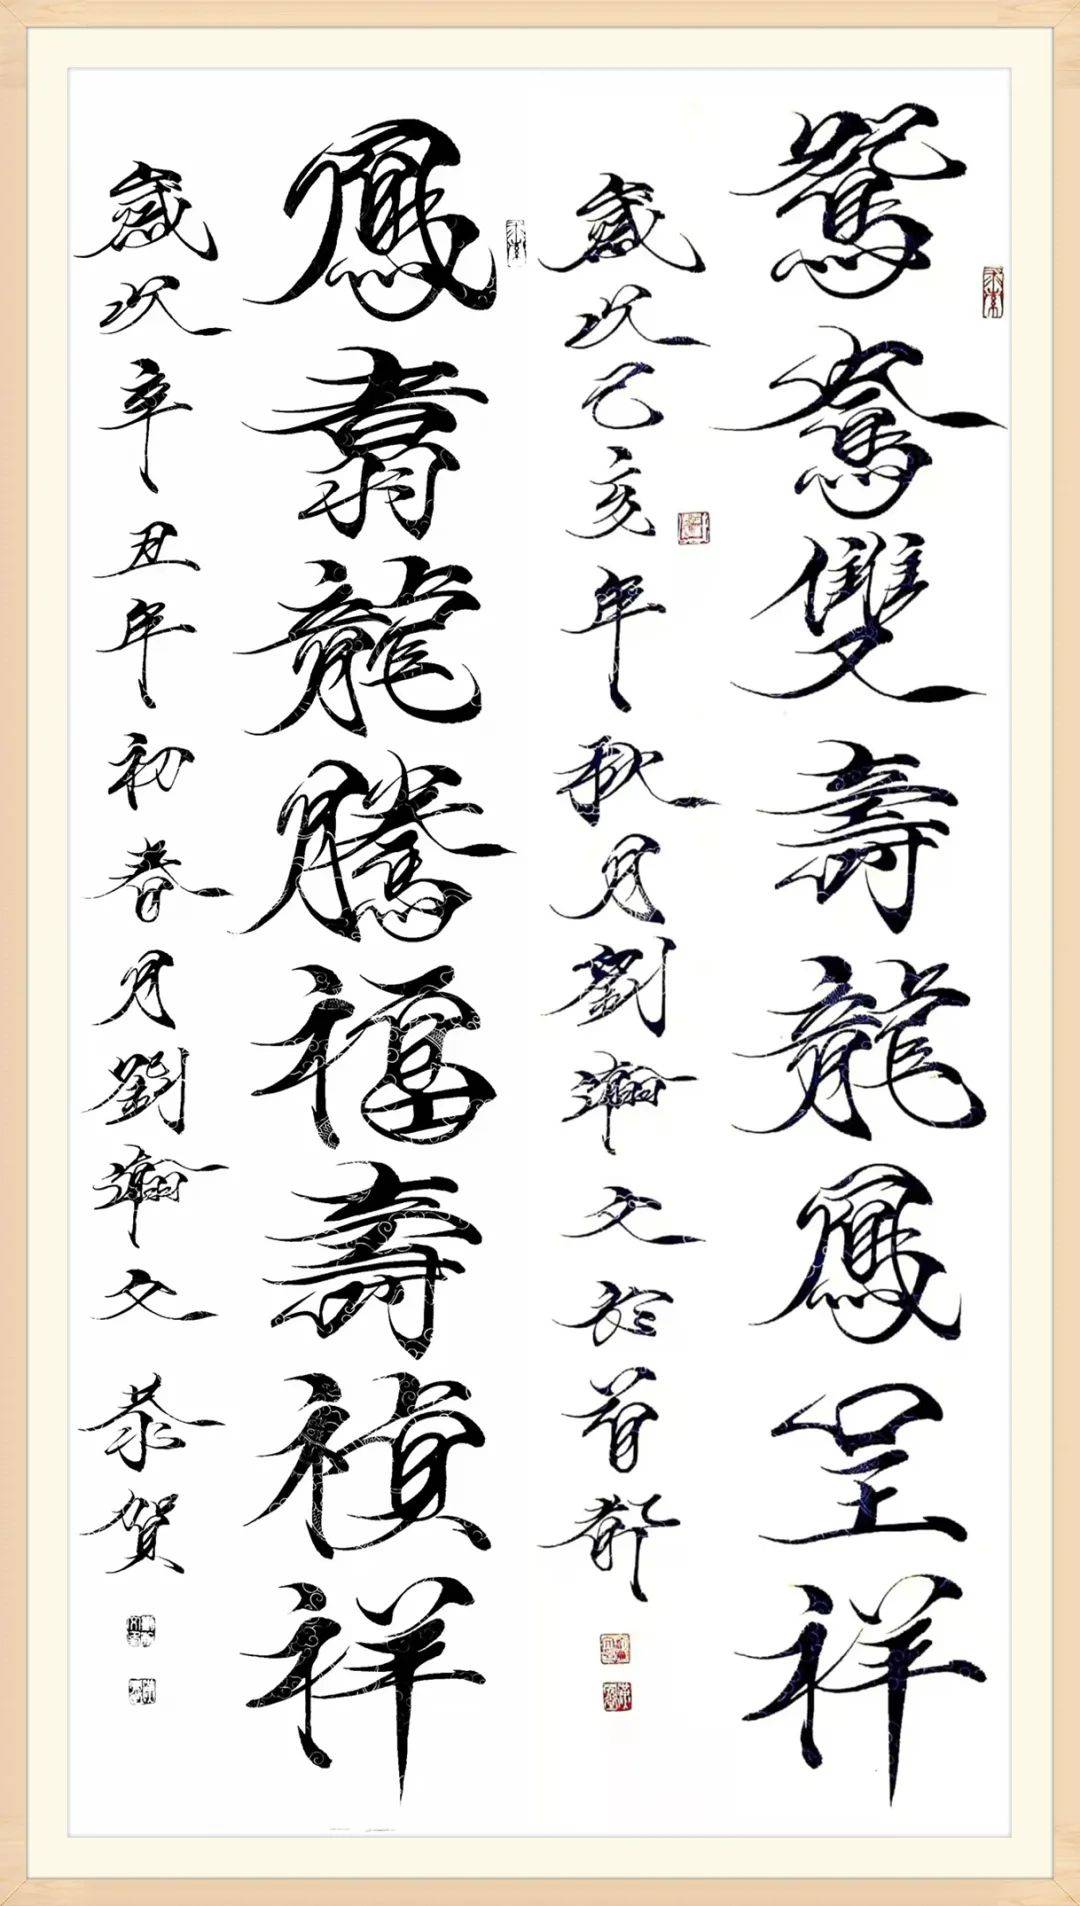 鴛鴦雙壽龍鳳呈祥
歲次己亥年秋月劉瀚文於首都
鳳翥龍騰福壽禎祥
歲次辛丑年初春月劉瀚文恭賀